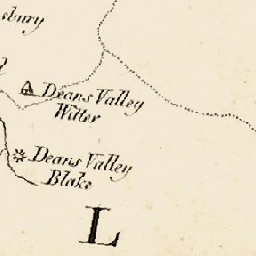 sbury
Deans Valley
Witter
Deans Valley
Blake
L